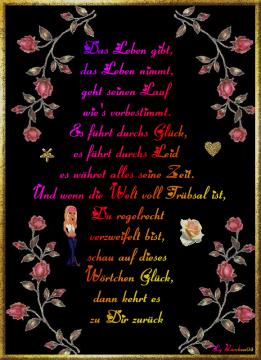 Das Leben gibt,
das Leben nimmt,
geht seinen Lauf
wie's vorbestimmt.
Es führt durchs Glück,
es führt durchs Leid
es währet alles seine Zeit.
Und wenn die Welt voll Trübsal ist,
Du regelrecht
verzweifelt bist,
schau auf dieses
Wörtchen Glück,
dann kehrt es
zu Dir zurück